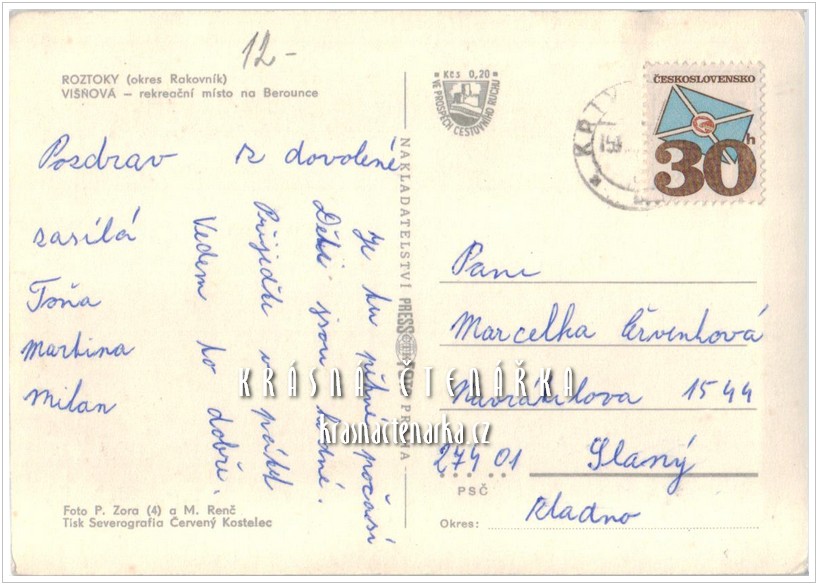 12-
ROZTOKY (okres Rakovník)
VIŠŇOVÁ – rekreační místo na Berounce
Kčs 0,20
VE PROSPĚCH CESTOVNÍHO RUCHU
ČESKOSLOVENSKO
30h
Pozdrav z dovolené
zasílá
Toňa
Martina
Milan
Je tu pěkné počasí
Děti jsou hodné.
Přijedte v pátek
Vedem to dobře.
NAKLADATELSTVÍ PRESSFOTO PRAHA
Paní
Marcelka Červenková
Navrátilova 1544
274 01 Slaný
PSČ
Okres: Kladno
KRÁSNÁ ČTENÁŘKA
krasnactenarka.cz
Foto P. Zora (4) a M. Renč
Tisk Severografia Červený Kostelec